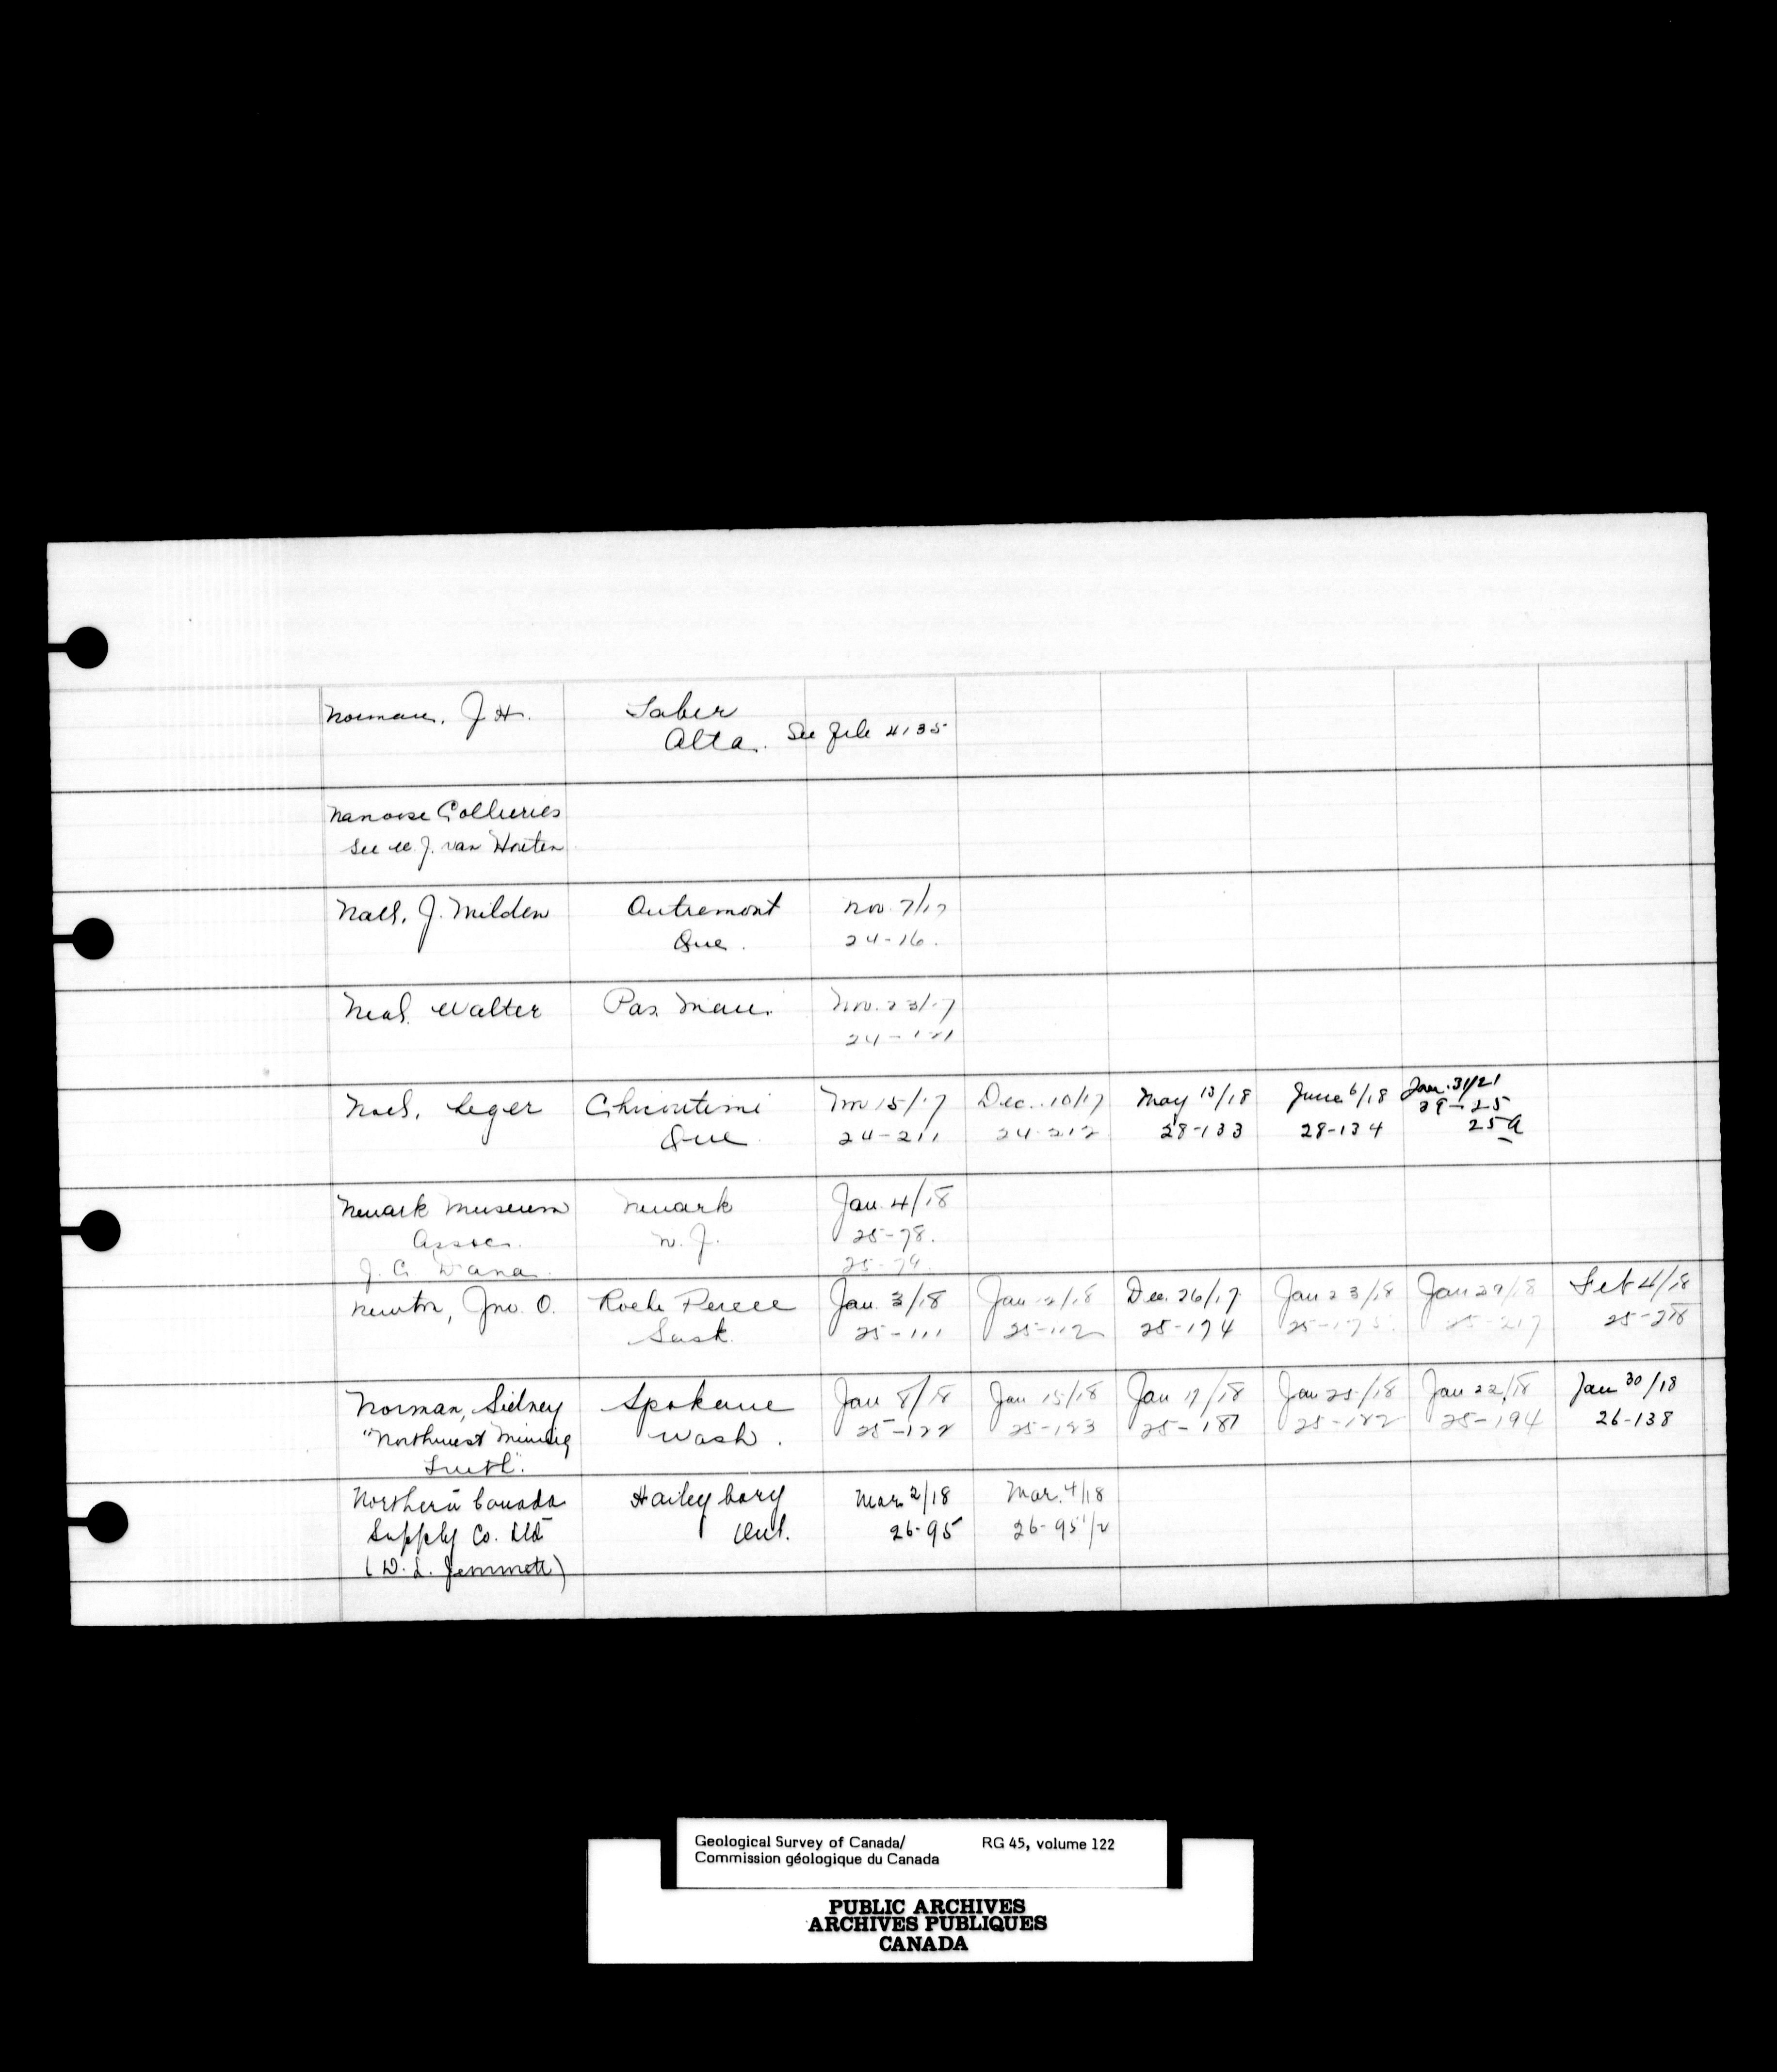 Norman, J. H.
Taber
Alta.
See file 4135
Nanoose Collieries
See W. J. van Houten
Noel, J. Milden
Outremont
Que.
Nov. 7/17
24-16.
Neal, Walter
Pas, Man.
Nov. 23/17
24-121
Noel, Leger
Chicoutimi
Que
Nov 15/17
24-211
Dec. 10/17
24-212
May 13/18
28-133
June 6/18
28-134
Jan. 31/21
39-25
25A
Newark Museum
Assoc.
J. C. Dana
Newark
N. J.
Jan. 4/18
25-78.
25-79.
Newton, Jno. O.
Roche Percee
Sask.
Jan. 3/18
25-111
Jan 12/18
25-112
Dec. 26/17
25-174
Jan 23/18
25-175.
Jan 29/18
25-217
Feb 4/18
25-218
Norman, Sidney
"Northwest Mining
Truth".
Spokane
Wash.
Jan 8/18
25-122
Jan 15/18
25-123
Jan 17/18
25-181
Jan 25/18
25-182
Jan 22/18
25-194
Jan 30/18
26-138
Northern Canada
Supply Co. Ltd
(D. L. Jemmett)
Haileybury
Ont.
Mar. 2/18
26-95
Mar. 4/18
26-95 1/2
Geological Survey of Canada/
Commission géologique du Canada
RG 45, volume 122
PUBLIC ARCHIVES
ARCHIVES PUBLIQUES
CANADA